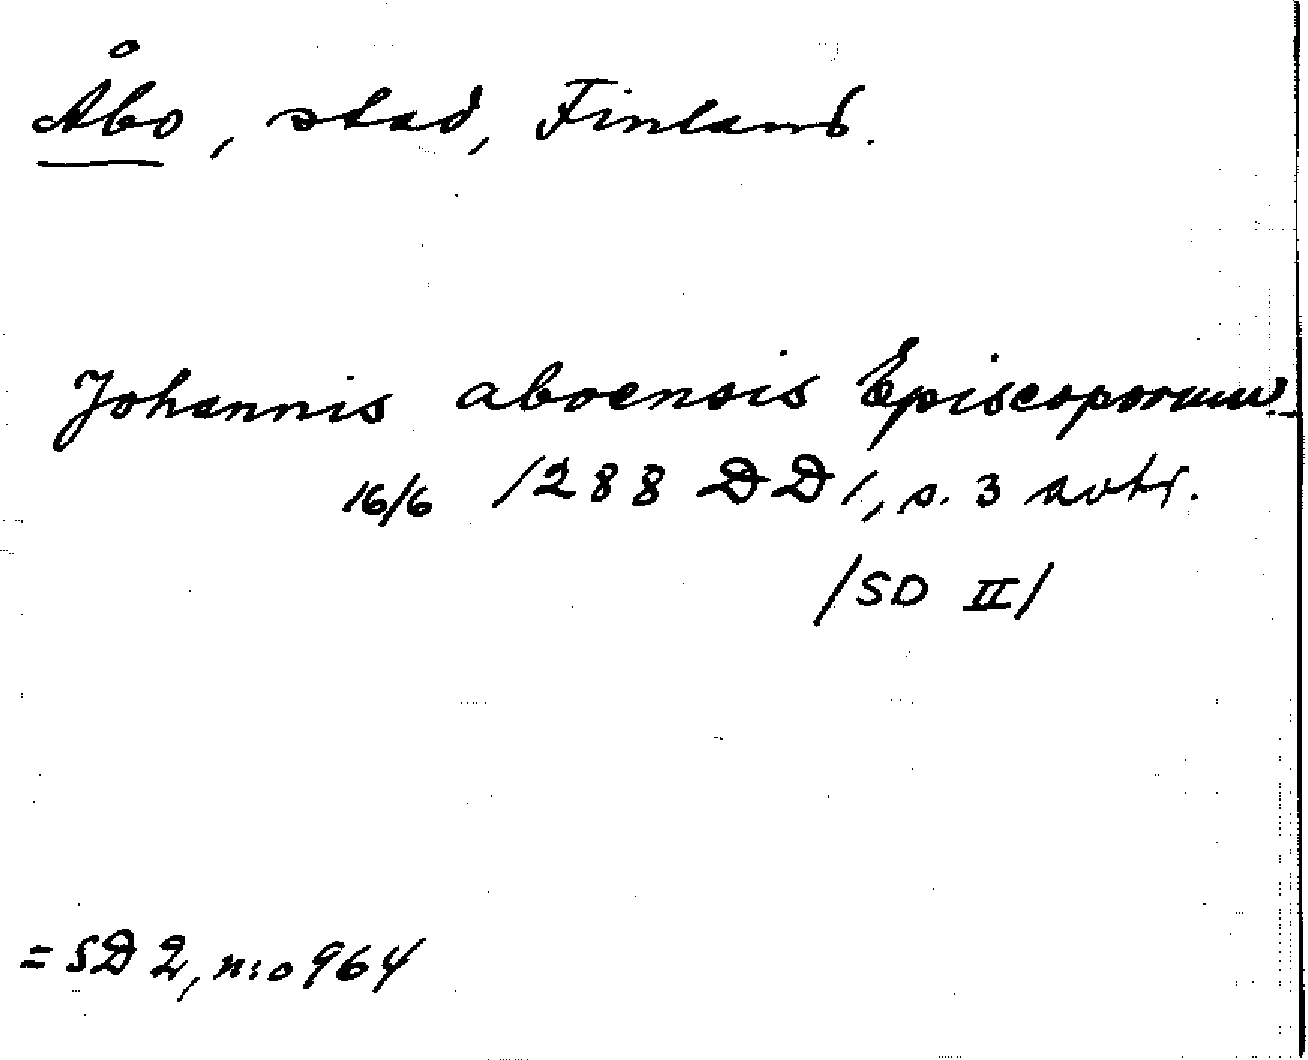 Åbo, stad, Finland.
Johannis aboensis Episcoporum
16/6 1288 DD 1, s. 3 avtr.
/SD II/
= SD 2, n:o 964